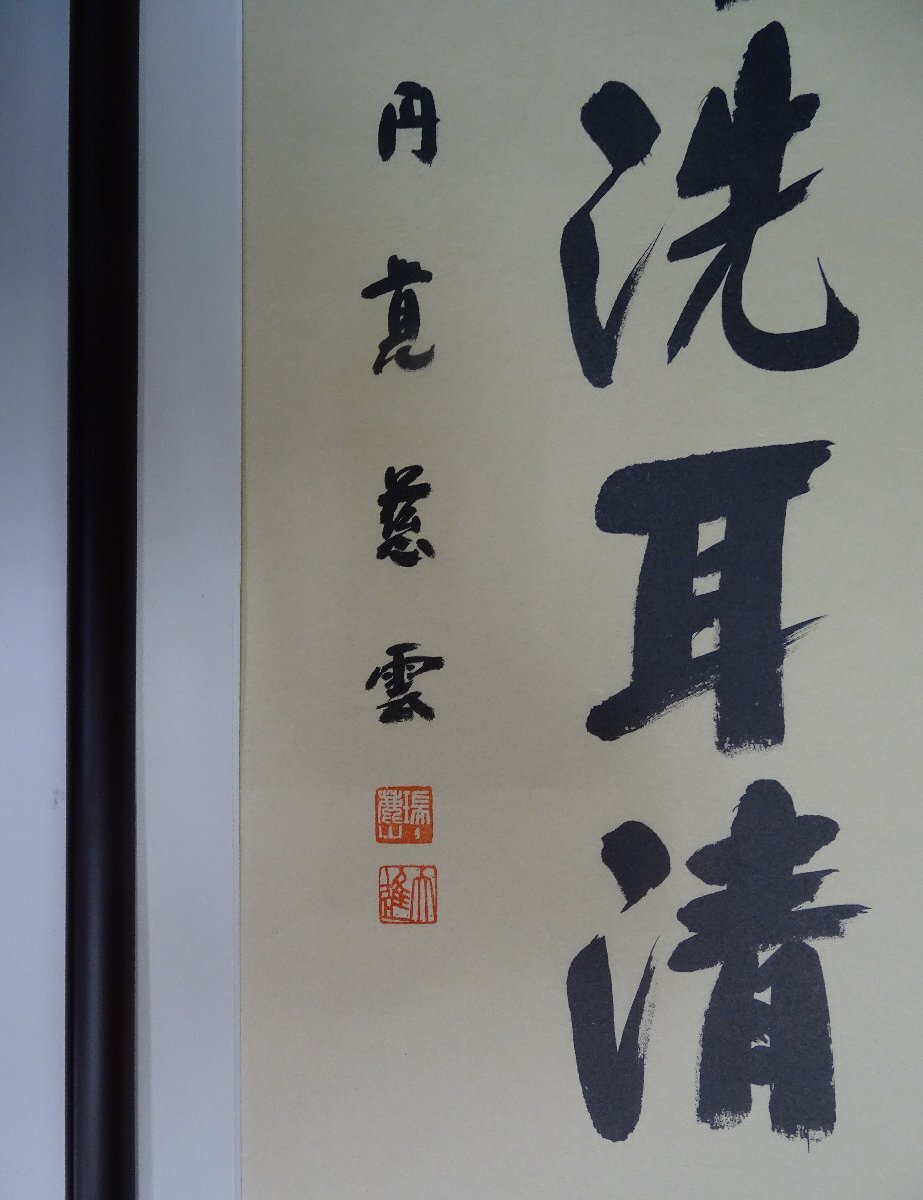 洗耳清
円真慈雲